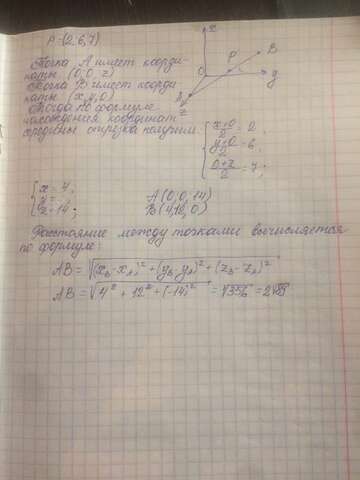 P-(2,6,7)
Точка А имеет коорди-
наты (0,0,z)
Точка В имеет коорди-
наты (x,y,0)
Тогда по формуле
нахождения координат
середины отрезка получим
x
P
B
0
y
A
z
x+0/2 = 2,
y+0/2 = 6,
0+z/2 = 7;
x = 4,
y =
z = 14;
A(0,0,14)
B(4,12,0)
Расстояние между точками вычисляется
по формуле:
AB = √(x_B-x_A)² + (y_B-y_A)² + (z_B-z_A)²
AB = √4² + 12² + (-14)² = √356 = 2√89